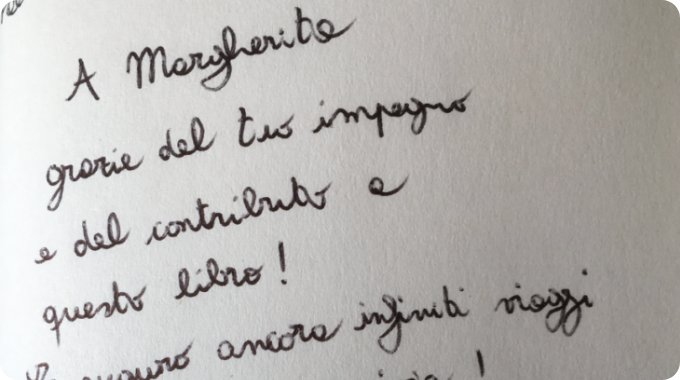 A Margherita
grazie del tuo impegno
e del contributo a
questo libro!
ancora infiniti viaggi
!